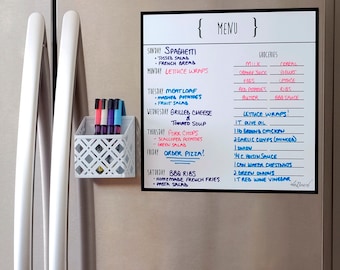 { MENU }
SUNDAY SPAGHETTI
• TOSSED SALAD
• FRENCH BREAD
MONDAY LETTUCE WRAPS
TUESDAY MEATLOAF
• MASHED POTATOES
• FRUIT SALAD
WEDNESDAY GRILLED CHEESE
& TOMATO SOUP
THURSDAY PORK CHOPS
• SCALLOPED POTATOES
• GREEN SALAD
FRIDAY ORDER PIZZA!
SATURDAY BBQ RIBS
• HOMEMADE FRENCH FRIES
• PASTA SALAD
GROCERIES
MILK CEREAL
EGGS
BUTTER BBQ SAUCE
LETTUCE WRAPS:
1T OLIVE OIL
1 LB GROUND CHICKEN
2 GARLIC CLOVES (MINCED)
1 ONION
1/4 C HOISIN SAUCE
1 CAN WATER CHESTNUTS
2 GREEN ONIONS
1T RED WINE VINEGAR